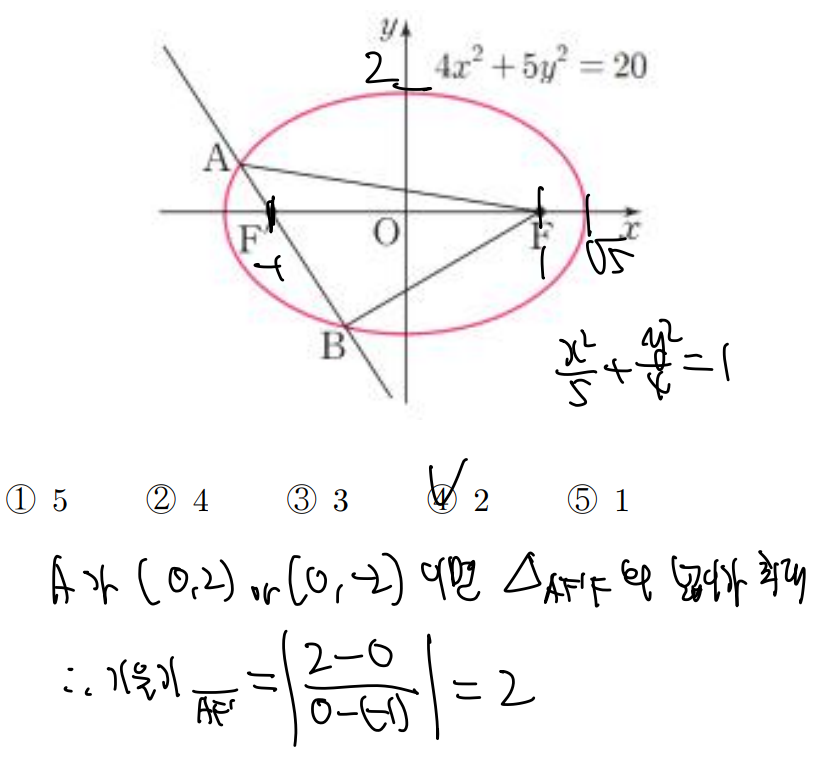 y
2
4x² + 5y² = 20
A
F' O F x
-1 1 √5
B
x²/5 + y²/4 = 1
① 5 ② 4 ③ 3 ④ 2 ⑤ 1
A가 (0,2) or (0,-2) 이면 △AF'F의 넓이가 최대
∴ 기울기 AF' = |(2-0)/(0-(-1))| = 2